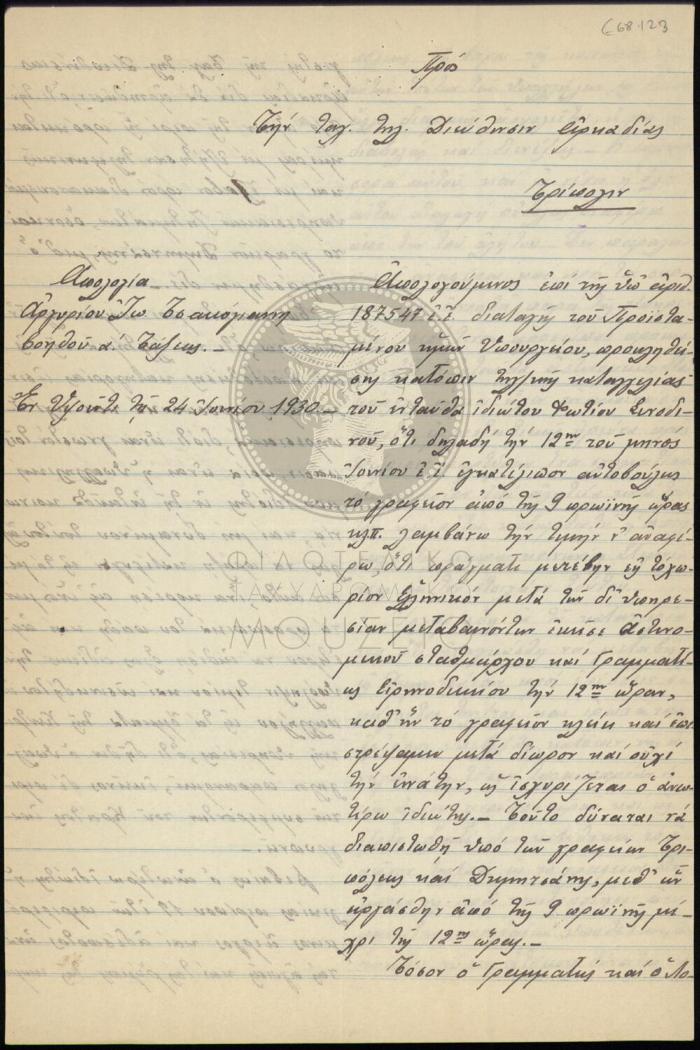 C68.123
Πρός
Τὴν ταχ. τηλ. Διεύθυνσιν Ἀρκαδίας
Τρίπολιν
Ἀπολογία
Ἀργυρίου Ἰω. Τσακογιάννη
βοηθοῦ α' Τάξεως.—
Ἐν τῇ 24 Ἰουνίου 1930.—
Ἀπολογούμενος ἐπὶ τῆς ὑπ' ἀριθ.
187547 ἐ.ἔ. διαταγῆς τοῦ Προϊστα-
μένου ἡμῶν Ὑπουργείου, προκληθεί-
σης κατόπιν τηλ/κῆς καταγγελίας
τοῦ ἐνταῦθα ἰδιώτου Φωτίου Συνοδι-
νοῦ, ὅτι δηλαδὴ τὴν 12ην τοῦ μηνός
Ἰουνίου ἐ.ἔ. ἐγκατέλιπον αὐτοβούλως
τὸ γραφεῖον ἀπὸ τῆς 9 πρωϊνῆς ὥρας
κλπ. λαμβάνω τὴν τιμὴν ν' ἀναφέ-
ρω, ὅτι πράγματι μετέβην εἰς τὸ χω-
ρίον Ἑλληνικὸν μετὰ τῶν δι' ὑπηρε-
σίαν μεταβαινόντων ἐκεῖσε Ἀστυνο-
μικοῦ σταθμάρχου καὶ Γραμματέ-
ως Εἰρηνοδικείου τὴν 12ην ὥραν,
καθ' ἣν τὸ γραφεῖον κλείει καὶ ἐπε-
στρέψαμεν μετὰ δίωρον καὶ οὐχὶ
τὴν ἐνάτην, ὡς ἰσχυρίζεται ὁ ἀνω-
τέρω ἰδιώτης.— Τοῦτο δύναται νὰ
διαπιστωθῇ ὑπὸ τῶν γραφείων Τρι-
πόλεως καὶ Δημητσάνης, μεθ' ὧν
εἰργάσθην ἀπὸ τῆς 9 πρωϊνῆς μέ-
χρι τῆς 12ης ὥρας.—
Τόσον ὁ Γραμματεὺς καὶ ὁ
ΦΙΛΟΤΕΛΙΚΟ
ΤΑΧΥΔΡΟΜΙΚΟ
ΜΟΥΣΕΙΟ